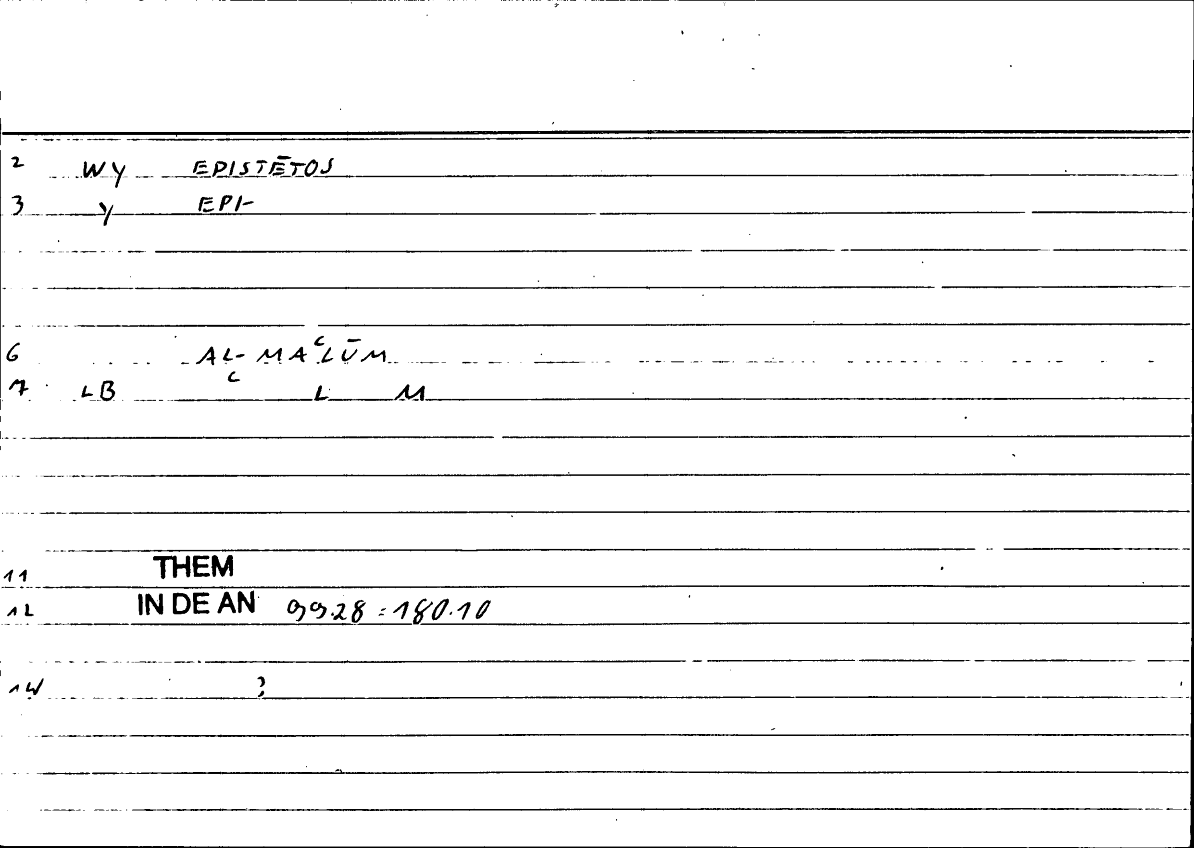 2 WY EPISTĒTOS
3 Y EPI-
6 AL-MAʿLŪM
7 LB ʿ L M
11 THEM
12 IN DE AN 99.28 = 180.10
14 ?